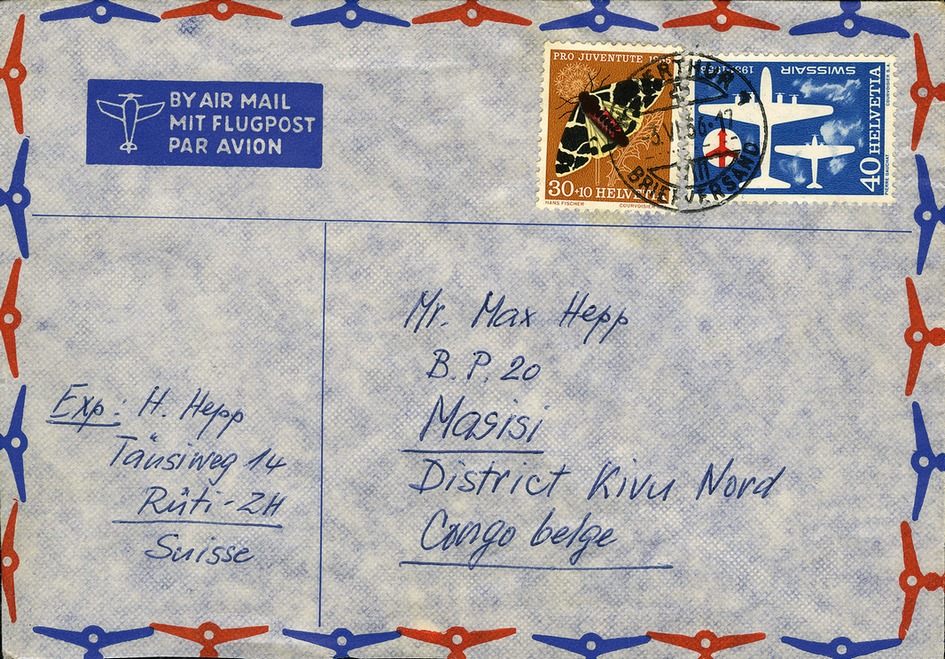 BY AIR MAIL
MIT FLUGPOST
PAR AVION
PRO JUVENTUTE
30+10 HELVETIA
HANS FISCHER
COURVOISIER
SWISSAIR
40 HELVETIA
PIERRE GAUCHAT
BRIEFVERSAND
Mr. Max Hepp
B.P. 20
Masisi
District Kivu Nord
Congo belge
Exp: H. Hepp
Tänsiweg 14
Rüti-ZH
Suisse